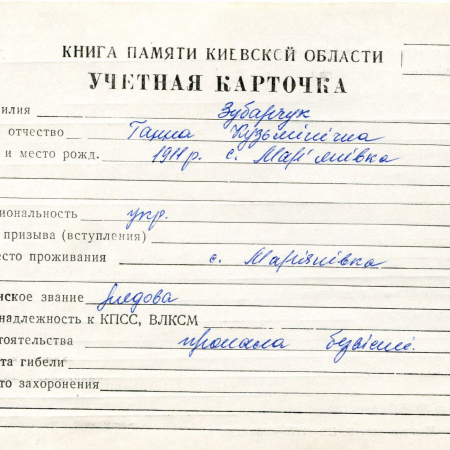 КНИГА ПАМЯТИ КИЕВСКОЙ ОБЛАСТИ
УЧЕТНАЯ КАРТОЧКА
илия Зубарчук
отчество Ганна Кузьмінічна
и место рожд. 1911 р. с. Мар'янівка
иональность укр.
призыва (вступления)
есто проживания с. Мар'янівка
нское звание рядова
надлежность к КПСС, ВЛКСМ
тоятельства пропала безвісті.
та гибели
то захоронения